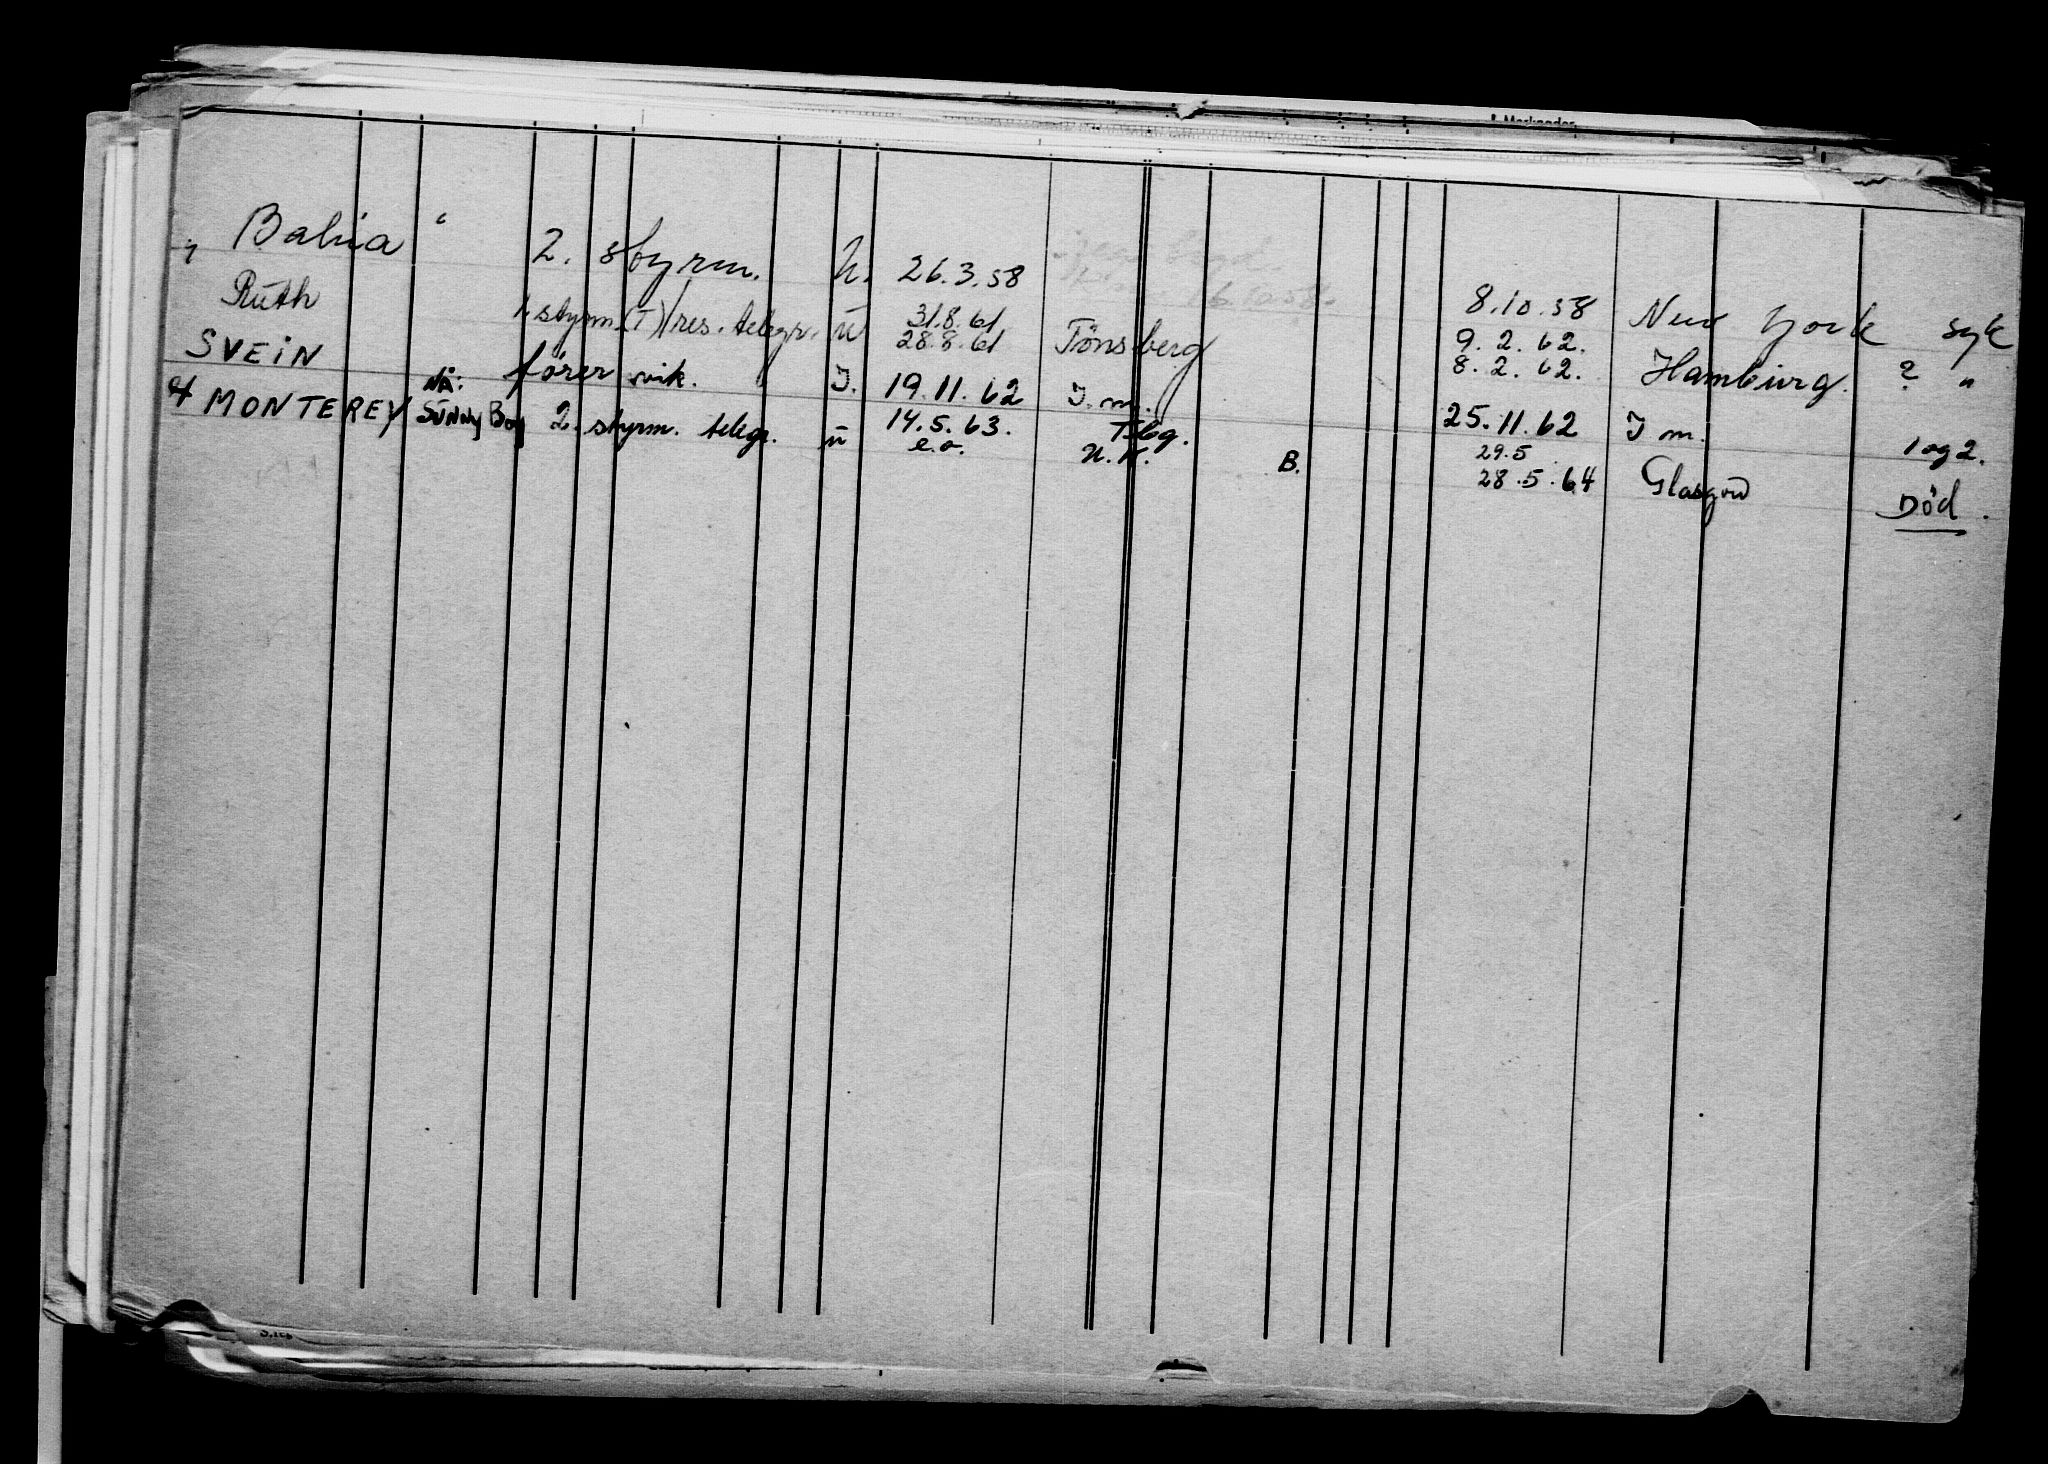 Bahia " 2. styrm. U. 26.3.58 8.10.58 New York syk
Ruth 1. styrm (T)/res. telegr. u 31.8.61 28.8.61 Tönsberg 9.2.62. 8.2.62. Hamburg. ? "
SVEIN förer vik. J. 19.11.62 J. m. 25.11.62 J m. 1 og 2.
4 MONTEREY NÅ: SUNNY Boy 2. styrm. telegr. u 14.5.63. e.o. Tsbg. U.K. B. 29.5 28.5.64 Glasgow Död.